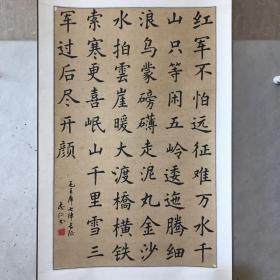 红军不怕远征难万水千
山只等闲五岭逶迤腾细
浪乌蒙磅礴走泥丸金沙
水拍雲崖暖大渡橋横铁
索寒更喜岷山千里雪三
军过后尽开颜
毛主席七律長征